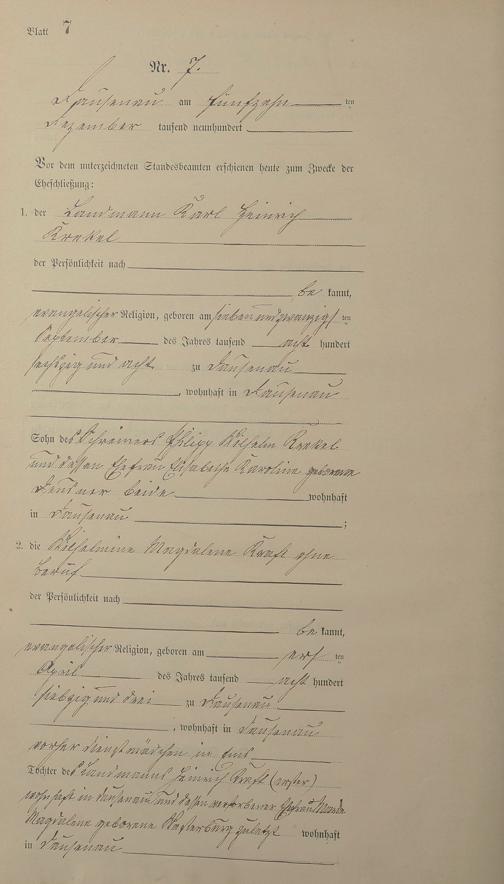 Blatt 7
Nr. 7.
Dausenau am fünfzehn ten
Dezember tausend neunhundert
Vor dem unterzeichneten Standesbeamten erschienen heute zum Zwecke der
Eheschließung:
1. der Landmann Karl Heinrich
Krekel
der Persönlichkeit nach
be kannt,
evangelischer Religion, geboren am siebenundzwanzigs ten
September des Jahres tausend acht hundert
sechszig und acht zu Dausenau
, wohnhaft in Dausenau
Sohn des Schreiners Philipp Wilhelm Krekel
und dessen Ehefrau Elisabethe Karoline geborene
beide wohnhaft
in Dausenau ;
2. die Wilhelmine Magdalene Kraft ohne
Beruf
der Persönlichkeit nach
be kannt,
evangelischer Religion, geboren am ers ten
April des Jahres tausend acht hundert
siebzig und drei zu Dausenau
, wohnhaft in Dausenau
vorher Dienstmädchen in Ems
Tochter des Landmanns Heinrich Kraft (erster)
wohnhaft in Dausenau und dessen verstorbener Ehefrau
Magdalene geborene zuletzt wohnhaft
in Dausenau